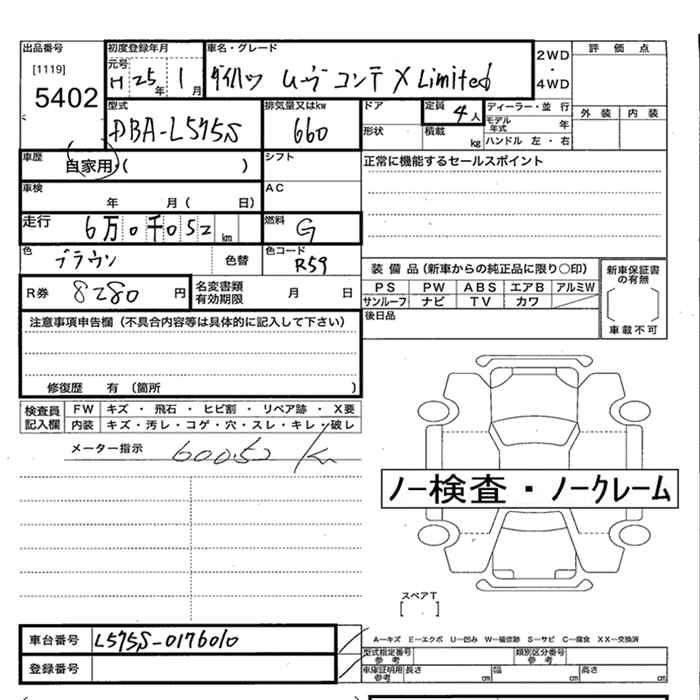 出品番号 初度登録年月 車名・グレード 2WD 評価点
[1119] 元号 H 25年 1月 ダイハツ ムーヴ コンテ X Limited ・
5402 4WD 外装 内装
型式 排気量又はkw ドア 定員 4人 ディーラー・並 行
DBA-L575S 660 形状 積載 kg モデル年式 年
ハンドル 左・右
車歴 自家用・( ) シフト 正常に機能するセールスポイント
車検 年 月( 日) AC
走行 6万0千052km 燃料 G
色 ブラウン 色替 色コード R59
装備品(新車からの純正品に限り○印) 新車保証書の有無
R券 8280円 名変書類有効期限 月 日 PS PW ABS エアB アルミW
サンルーフ ナビ TV カワ [ ]
注意事項申告欄(不具合内容等は具体的に記入して下さい) 後日品 車載不可
修復歴 有(箇所 )
検査員記入欄 FW キズ・飛石・ヒビ割・リペア跡・X要
内装 キズ・汚レ・コゲ・穴・スレ・キレ・破レ
メーター指示 60052 Km
ノー検査・ノークレーム
スペアT
[ ]
車台番号 L575S-0176010 A―キズ E―エクボ U―凹み W―補修跡 S―サビ C―腐食 XX―交換済
型式指定番号 参考 類別区分番号 参考
登録番号 車庫証明用 参考 長さ cm 幅 cm 高さ cm